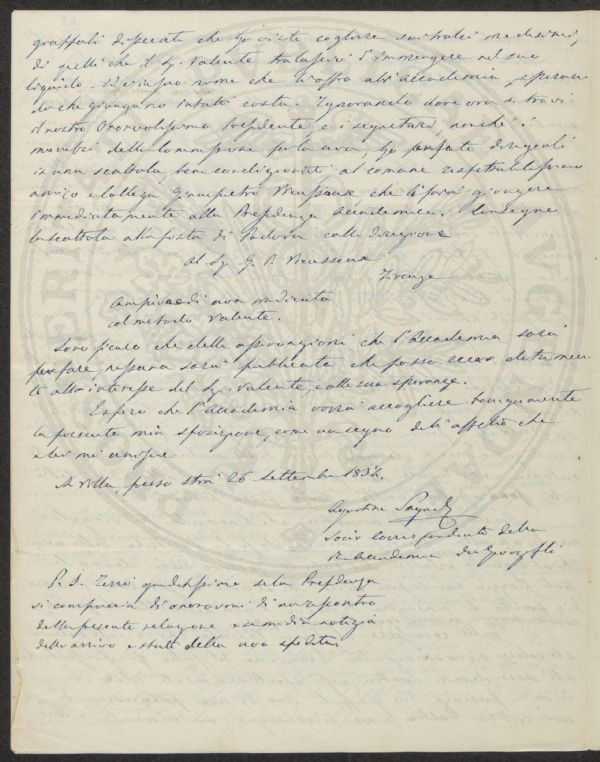 grappoli disseccati che ho visto cogliere sui tralci medesimi,
di quelli che il Sg. Valente tralasciò d'immergere nel suo
liquido. Ed è in suo nome che n'offro all'Accademia, speran
do che giungano intatti costà. Ignorando dove ora si trovi
il nostro Onorevolissimo Presidente e i segretari, nonché i
membri della Commissione per la uva, ho pensato dirigerli
in una scattola bene condizionati, al comune rispettabilissimo
amico e collega Giampietro Vieusseux, che li farà giungere
immediatamente alla Presidenza Accademica. Consegno
la scattola alla posta di Padova colla direzione
Al Sg. G. P. Vieusseux
Firenze
Campione di uva
col metodo Valente.
Sono sicuro che delle osservazioni che l'Accademia sarà
per fare, nessuna sarà pubblicata che possa essere detrimen
to all'interesse del Sg. Valente, e alle sue speranze.
Espero che l'Accademia vorrà accogliere benignamente
la presente mia sposizione, come un segno dell'affetto che
a lei mi unisce
A Villa, presso Strà 26 settembre
Agostino Sagredo
Socio corrispondente della
R. Accademia dei Georgofili
P. S. Terrò graditissimo se la Presidenza
si compiaccia di onorarmi di un riscontro
della presente relazione e una notizia
dello arrivo e stato della uva spedita